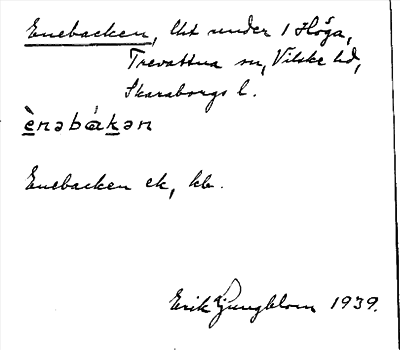 Enebacken, lht under 1 Höga,
Trevattna sn, Vilske hd,
Skaraborgs l.
ènəbákən
Enebacken ek, kb.
Erik Ljungblom 1939.